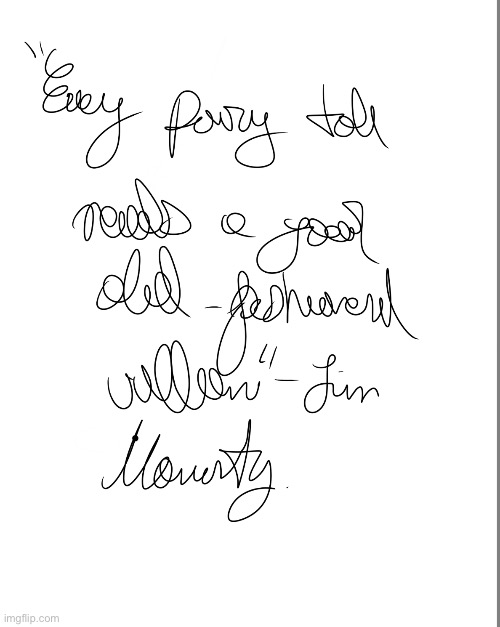 "Every fairy tale
needs a good
old-fashioned
villain" - Jim
Moriarty.
imgflip.com